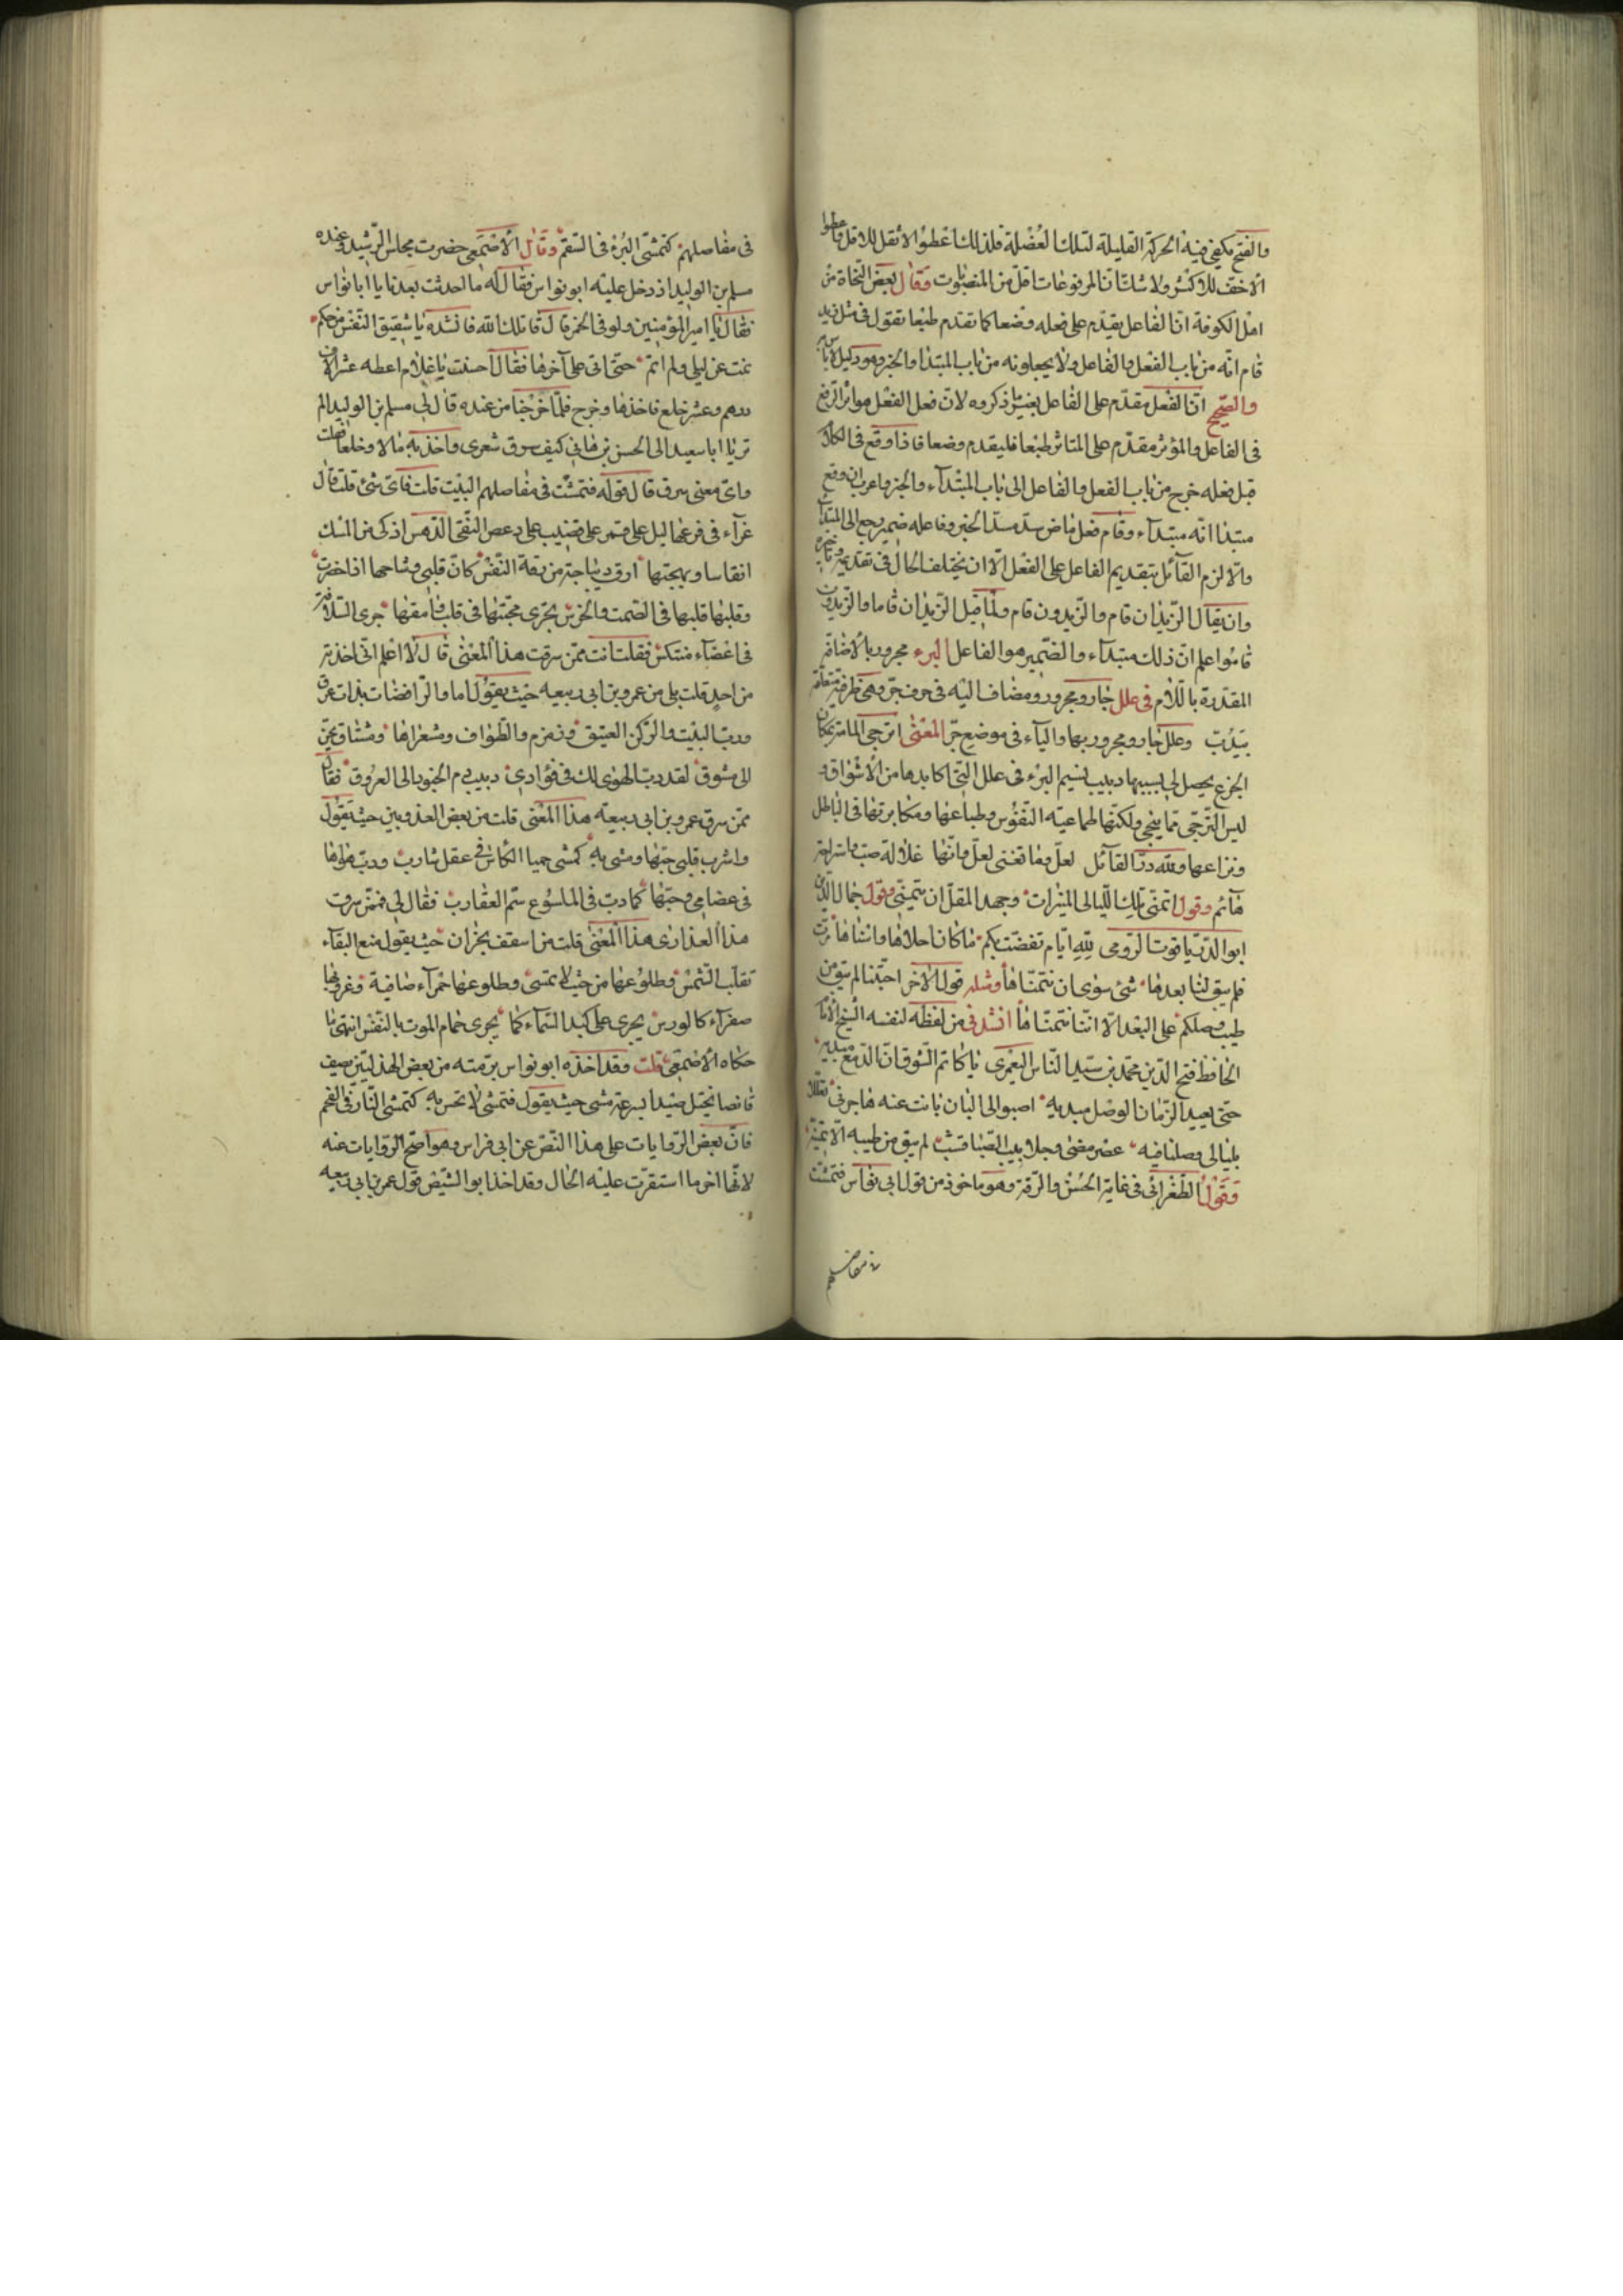 والفتح يكفى فيه الحركة القليلة لتلك العضلة فلذلك اعطوا الاثقل للاقل واعطوا
الاخف للاكثر ولا شك ان المرفوعات اقل من المنصوبات وقال بعض النحاة من
اهل الكوفة ان الفاعل يقدم على فعله وضعا كما تقدم طبعا تقول فى مثل زيد
قام انه من باب الفعل والفاعل ولا يجعلونه من باب المبتدا والخبر وهو دليل لا باس به
والصحيح ان الفعل مقدم على الفاعل بغير ما ذكروه لان فعل الفعل هو اثر الرفع
فى الفاعل والمؤثر مقدم على المتاثر طبعا فليقدم وضعا فاذا وقع فى الكلام
قبل فعله خرج من باب الفعل والفاعل الى باب المبتدآء والخبر واعرب ان وقع
مبتدا انه مبتدآء وقام فعل ماض سد مسد الخبر وفاعله ضمير رجع الى المبتدآ
والا لزم القآئل بتقديم الفاعل على الفعل الا ان يختلف الحال فى تقديمه وتاخيره
وان يقال الزيدان قام والزيدون قام ولما قيل الزيدان قاما والزيدون
قاموا علم ان ذلك مبتدآء والضمير هو الفاعل البرء مجرور بالاضافة
المقدرة باللام فى علل جار ومجرور ومضاف اليه فى حرف جر وهى ظرفية متعلقة
بيدب وعلل جار ومجرور بها والياء فى موضع جر المعنى اترجى المامة بمكان
الجزع يحصل لى بسببها دبيب نسيم البرء فى علل التى اكابدها من الاشواق و
ليس الترجى مما ينجى ولكنها طماعية النفوس وطباعها ومكابرتها فى الباطل
ونزاعها ولله در القآئل لعل وما تغنى لعل وانها علالة صب واستراحة
هآئم وقول اتمنى تلك الليالى المنيرات وجهد المقل ان يتمنى وقول جمال الدين
ابو الدر ياقوت الرومى لله ايام تقضت بكم ما كان احلاها واهناها مرت
فلم يبق لنا بعدها شئ سوى ان نتمناها ومثله قول الاخر احبتنا لم يبق من
طيب وصلكم على البعد الا اننا نتمناها انشدنى من لفظه لنفسه الشيخ الامام
الحافظ فتح الدين محمد بن سيد الناس اليعمرى يا كاتم الشوق ان الدمع مبديه
حتى يعيد الزمان الوصل مبديه اصبو الى البان بانت عنه هاجرتى تعللا
بليالى وصلنا فيه عصر مضى وجلابيب الصبا قشب لم يبق من طيبه الا تمنيه
وقول الطغرائى فى غاية الحسن والرقة وهو ماخوذ من قول ابى نواس فتمشت
فى مفاصلهم
فى مفاصلهم كتمشى البرء فى السقم وقال الاصمعى حضرت مجلس الرشيد وعنده
مسلم بن الوليد اذ دخل عليه ابو نواس فقال له ما احدثت بعدنا يا ابا نواس
فقال يا امير المؤمنين ولو فى الخمر قال قاتلك الله فانشده يا شقيق النفس من حكم
نمت عن ليلى ولم انم حتى اتى على آخرها فقال احسنت يا غلام اعطه عشرة الاف
درهم وعشر خلع فاخذها وخرج فلما خرجنا من عنده قال لى مسلم بن الوليد الم
تر يا ابا سعيد الى الحسن بن هانى كيف سرق شعرى واخذ به مالا وخلعا فقلت
واى معنى سرق قال قوله فتمشت فى مفاصلهم البيت قلت فاى شئ قلت قال
غرآء فى فرعها ليل على قمر على قضيب على دعص النقى الدهس اذكى من المسك
انفاسا وبهجتها ارق ديباجة من رقة النفس كان قلبى وشاحها اذا خطرت
وقلبها قلبها فى الصمت والخرس تجرى محبتها فى قلب وامقها جرى السلافة
فى اعضآء منتكس فقلت انت ممن سرقت هذا المعنى قال لا اعلم انى اخذته
من احد قلت بلى من عمرو بن ابى ربيعه حيث يقول اما والراقصات بذات عرق
ورب البيت والركن العتيق وزمزم والطواف ومشعراها ومشتاق يحن
الى مشوق لقد دب الهوى لك فى فؤادى دبيب دم الحيوة الى العروق فقال
ممن سرق عمرو بن ابى ربيعه هذا المعنى قلت من بعض العذريين حيث يقول
واشرب قلبى حبها ومشى به كمشى حميا الكاس فى عقل شارب ودب هواها
فى عظامى وحبها كما دب فى الملسوع سم العقارب فقال لى فممن سرقت
هذا العذارى هذا المعنى قلت من اسقف نجران حيث يقول منع البقآء
تقلب الشمس وطلوعها من حيث لا تمسى وطلوعها حمرآء صافية وغروبها
صفرآء كالورس يجرى على كبد السمآء كما يجرى حمام الموت بالنفس انتهى ما
حكاه الاصمعى قلت وقد اخذه ابو نواس برمته من بعض الهذليين يصف
قانصا يختل صيدا بسرعة مشى حيث يقول فتمشى لا تحس به كتمشى النار فى الفحم
فان بعض الروايات على هذا النص عن ابى فراس وهو اصح الروايات عنه
لانها اخر ما استقرت عليه الحال وقد اخذ ابو الشيص قول عمر بن ابى ربيعه